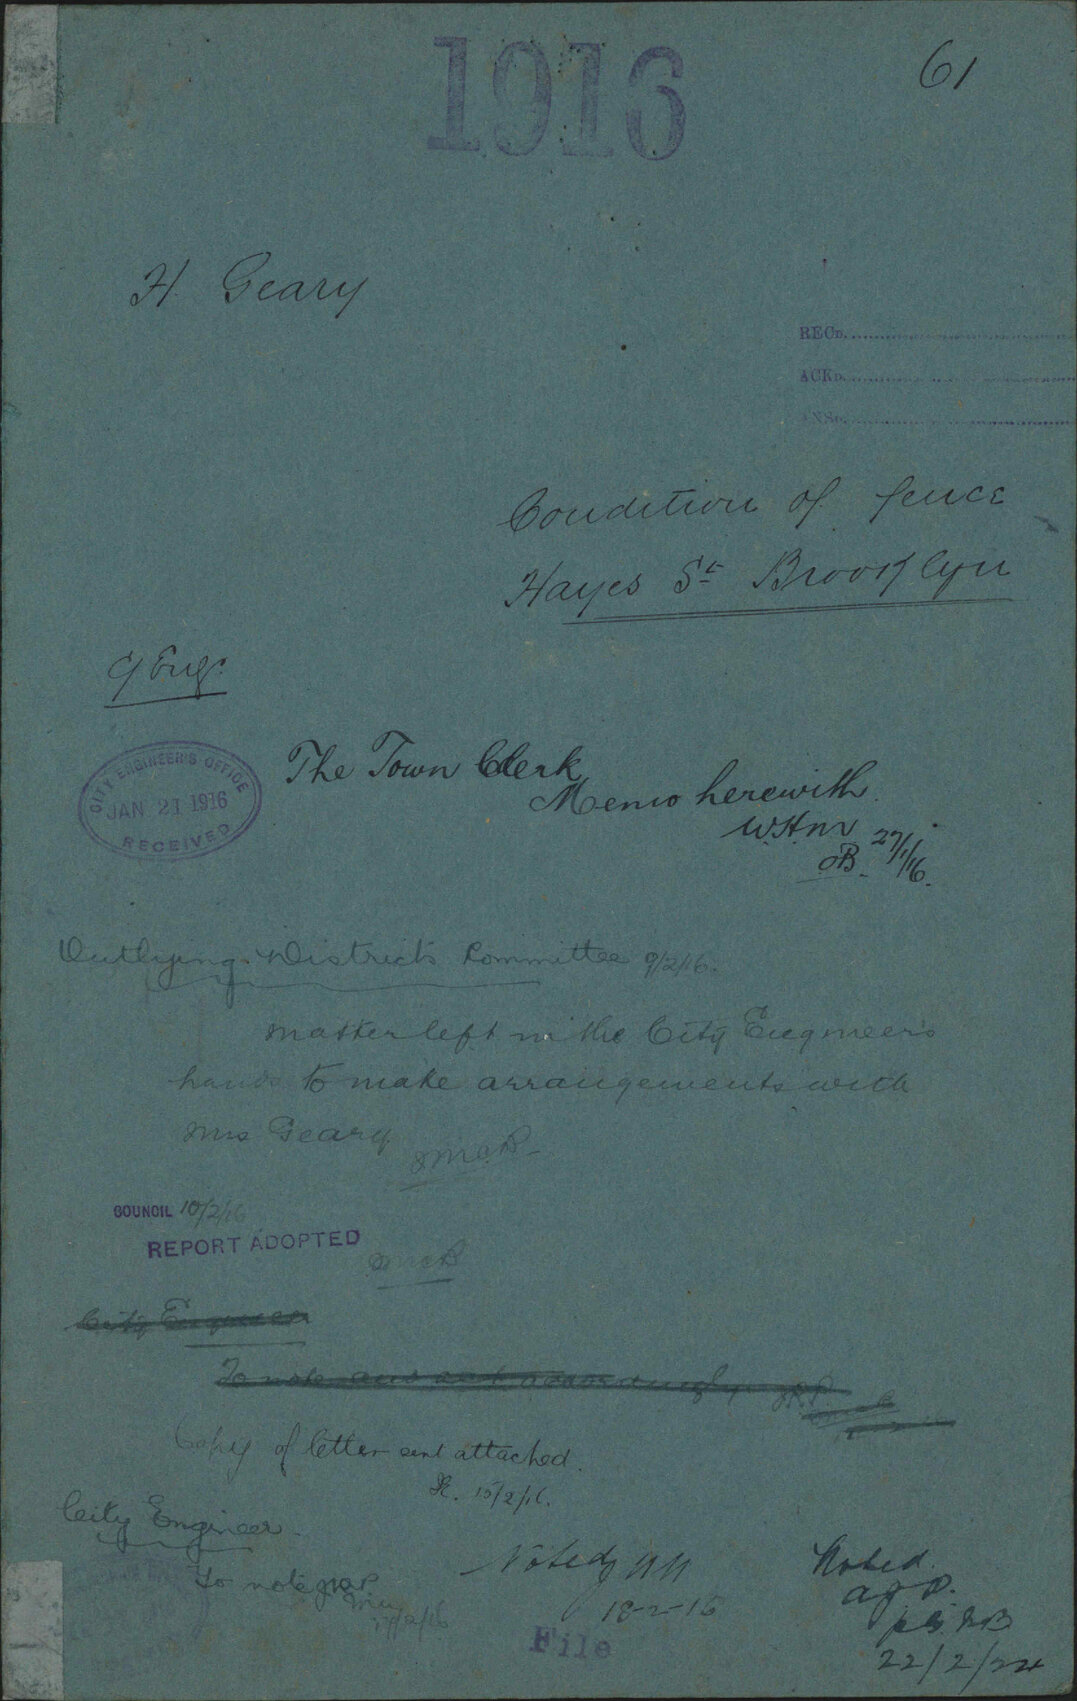 1916
61
H. Geary
RECD.
ACKD.
ANSD.
Condition of fence
Hayes St Brooklyn
C/Engr.
CITY ENGINEER'S OFFICE
JAN 21 1916
RECEIVED
The Town Clerk
Memo herewith.
W.H.M
OB. 27/1/16.
Outlying Districts Committee 9/2/16.
Matter left in the City Engineers
hands to make arrangements with
Mrs Geary
COUNCIL 10/2/16
REPORT ADOPTED
City Engineer
To note and act accordingly
Copy of letter sent attached.
15/2/16.
City Engineer
To note
17/2/16
Noted
18-2-16
Noted
22/2/24
File